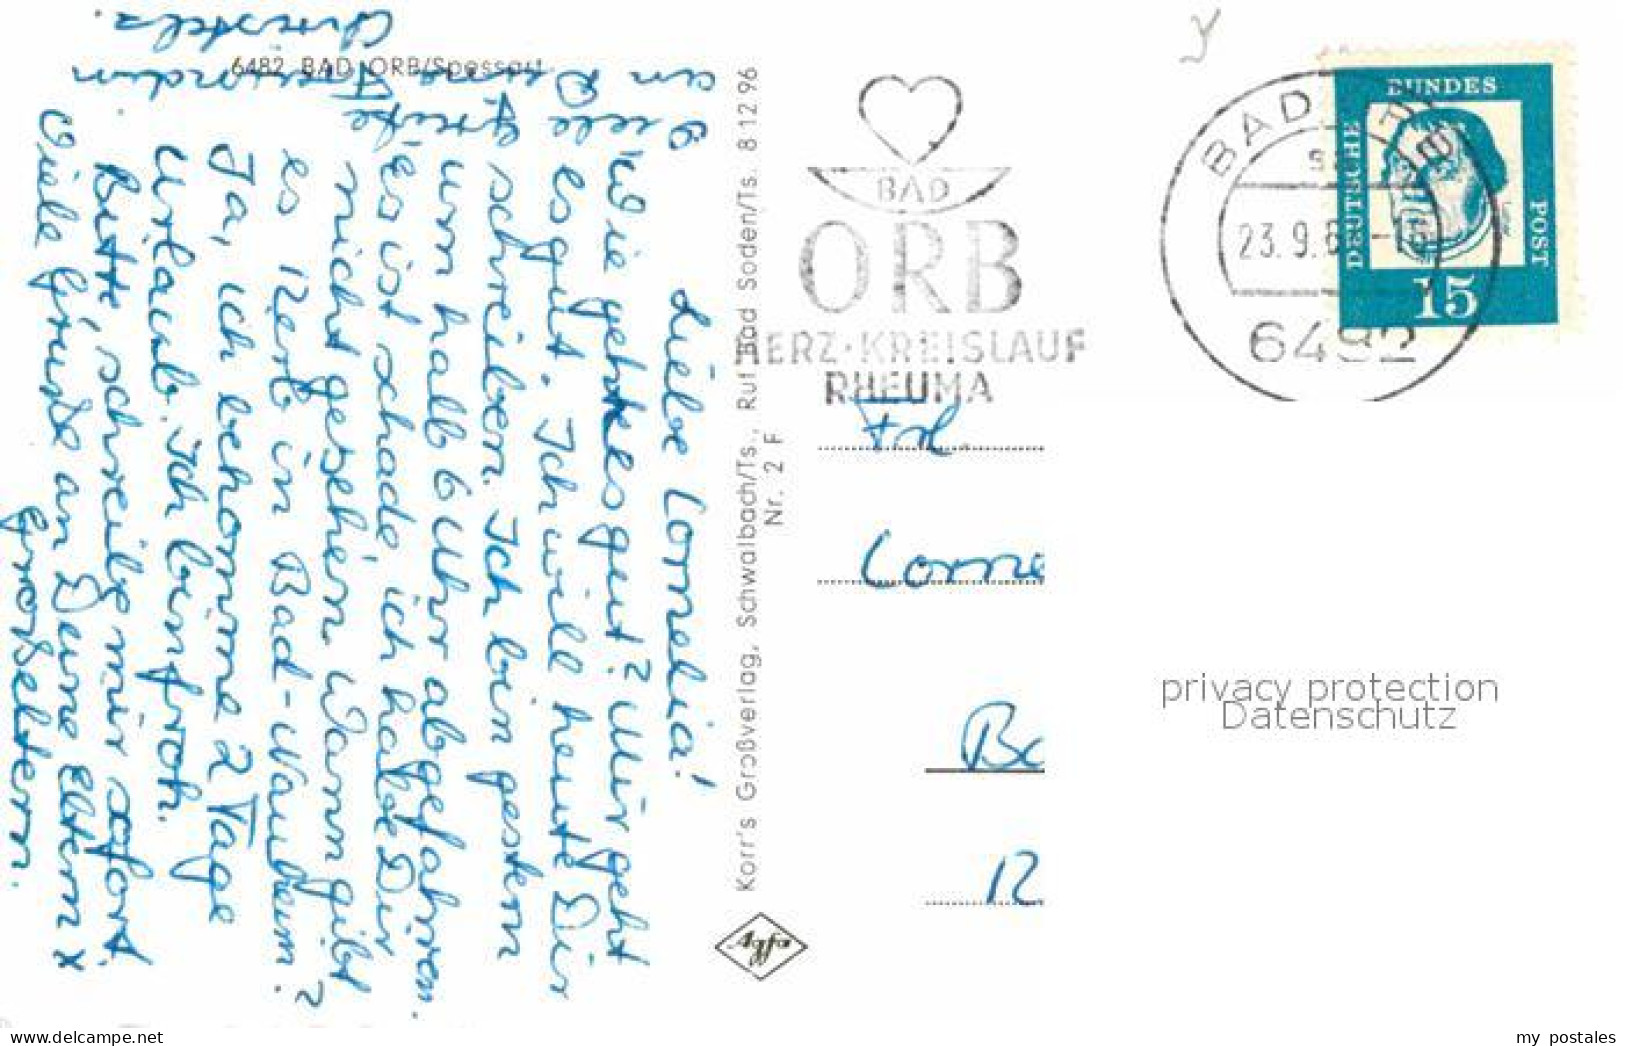 Liebe Cornelia!
Wie geht es gut? Mir geht
es gut. Ich will heute Dir
schreiben. Ich bin gestern
um halb 6 Uhr abgefahren.
es ist schade, ich habe Dir
nicht gesehen. Wann gibt
es in Bad-Nauheim?
Ja, ich bekomme 2 Tage
Urlaub. Ich bin froh.
Bitte, schreibe mir sofort.
Viele Grüße an Deine Eltern x
Großeltern.
Viele Grüße
6482 BAD ORB/Spessart
Korr's Großverlag, Schwalbach/Ts., Ruf Bad Soden/Ts. 8 12 96
Nr. 2 F
Agfa
BAD
ORB
HERZ·KREISLAUF
RHEUMA
BAD
23.9.6
6482
DEUTSCHE
BUNDES
POST
15
Frl.
Corne
Ba
privacy protection
Datenschutz
delcampe.net
my_postales